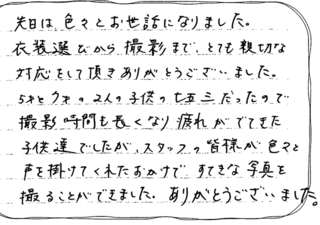 先日は色々とお世話になりました。
衣装選びから撮影まで、とても親切な
対応をして頂きありがとうございました。
5才と7才の2人の子供の七五三だったので
撮影時間も長くなり疲れがでてきた
子供達でしたが、スタッフの皆様が色々と
声を掛けてくれたおかげで、すてきな写真を
撮ることができました。ありがとうございました。